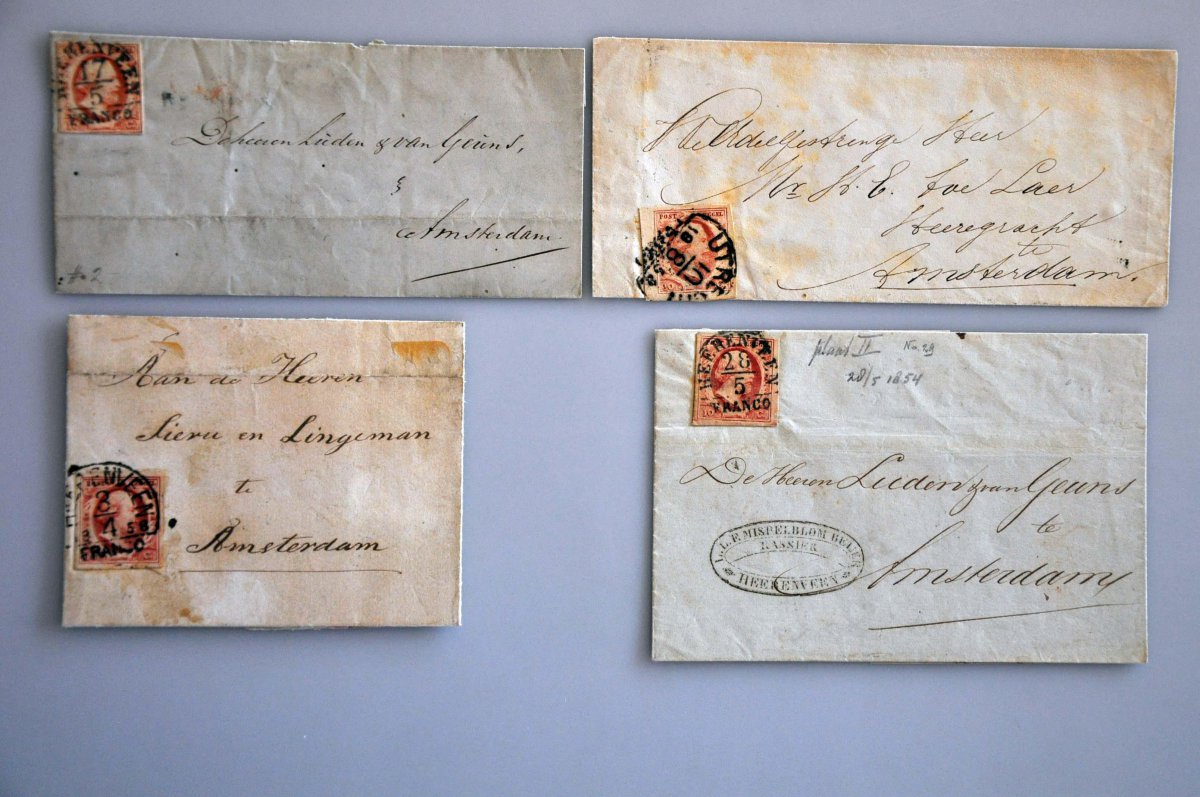 HEERENVEEN
17
5
FRANCO
De heeren Luden & van Geuns,
Amsterdam
No 2
Heer
Mr. H. E. toe Laer
Heeregracht
te
Amsterdam.
POST ZEGEL
UTRECHT
5
8
Aan de Heeren
en Lingeman
te
Amsterdam
HEERENVEEN
3
4 58
FRANCO
HEERENVEEN
28
5
FRANCO
10 C
plaat II No. 29
28/5 1854
De Heeren Luden & van Geuns
te
Amsterdam
MISPELBLOM BEIJER
KASSIER
HEERENVEEN